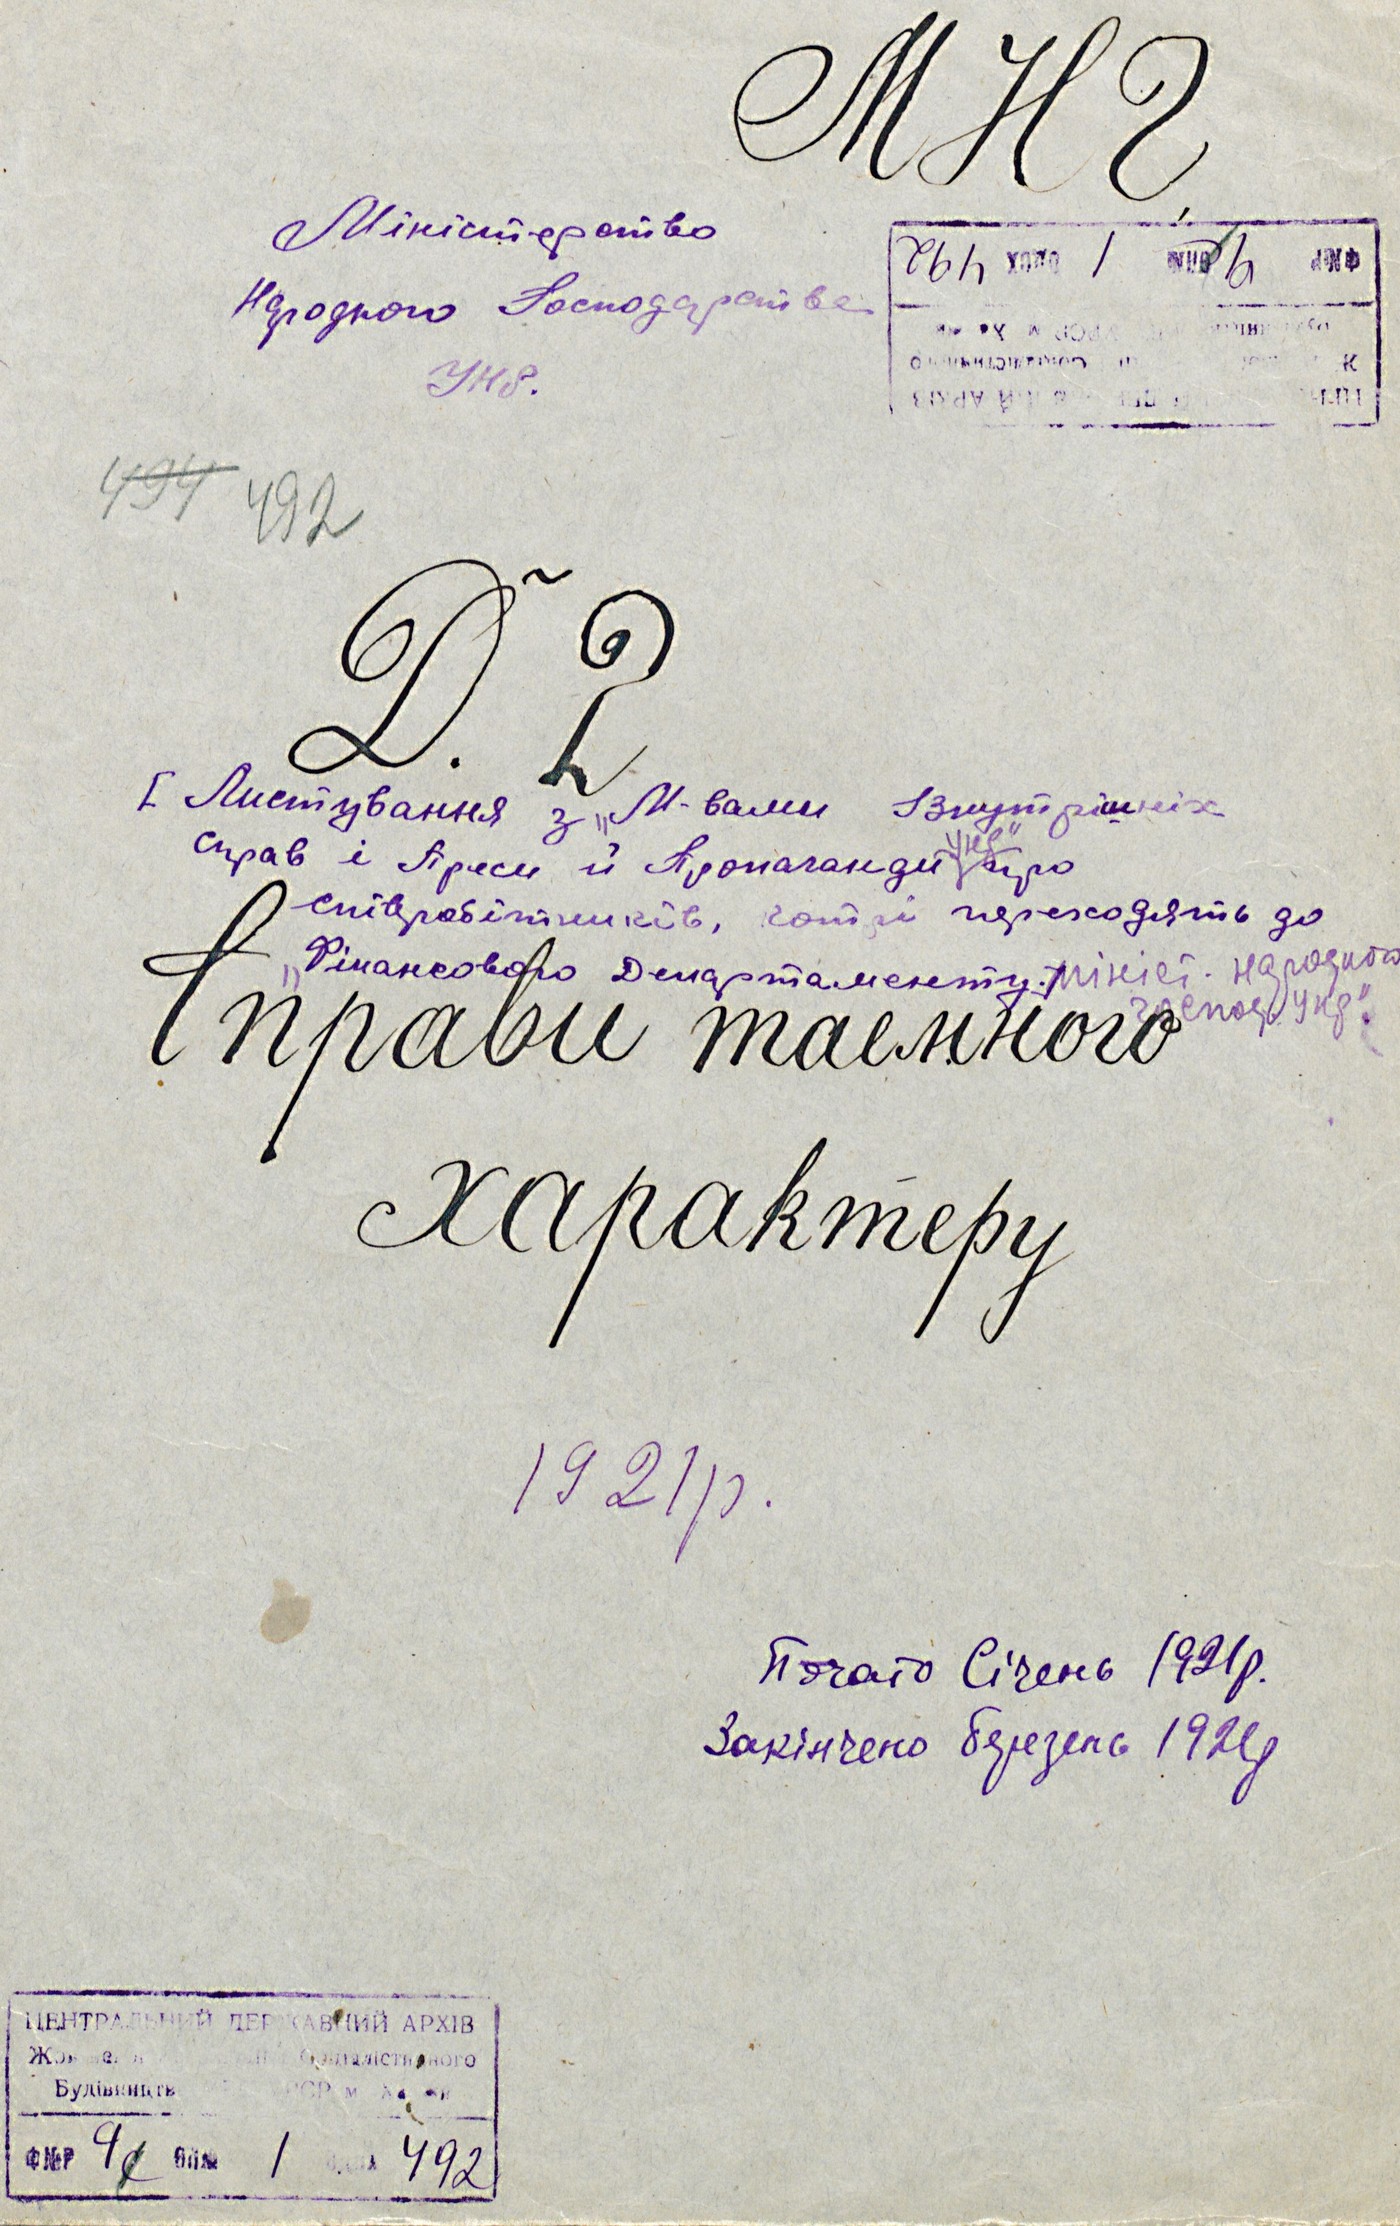 МНГ
Міністерство
Народного Господарства
УНР.
Ф№Р 9 ОП№ 1 ОДЗХ 492
494 492
Д. 2
[ Листування з „М-вами Внутрішніх
справ і Преси й Пропаганди УНР" про
співробітників, котрі переходять до
„Фінансового Департаменту." Мініст. народного
господ УНР".
Справи таємного
характеру
1921 р.
Почато Січень 1921р.
Закінчено березень 1921р
ЦЕНТРАЛЬНИЙ ДЕРЖАВНИЙ АРХІВ
Соціалістичного
Будівництв УРСР м.
ФНР 9 ОП№ 1 492